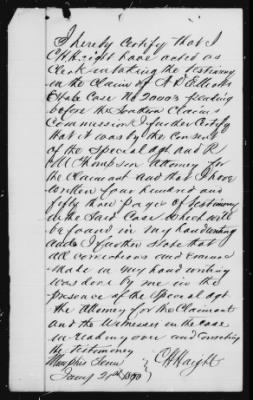 I hereby Certify that I
C H Knight have acted as
Clerk in taking the testimony
in the Claim of A P Elliott
Exta Case No 20003 pending
before the Southern Claims
Commission I further Certify
that it was by the Consent
of the Special agt and R
M Thompson Attorney for
the Claimant and that I have
written four hundred and
fifty three pages of testimony
in the said Case which will
be found in my hand writing
and I further State that
all corrections and erasures
made in my hand writing
was done by me in the
presence of the Special agt
the Attorney for the Claimant
and the Witnesses in the case
in reading over and correcting
the testimony
Memphis Tenn
C H Knight